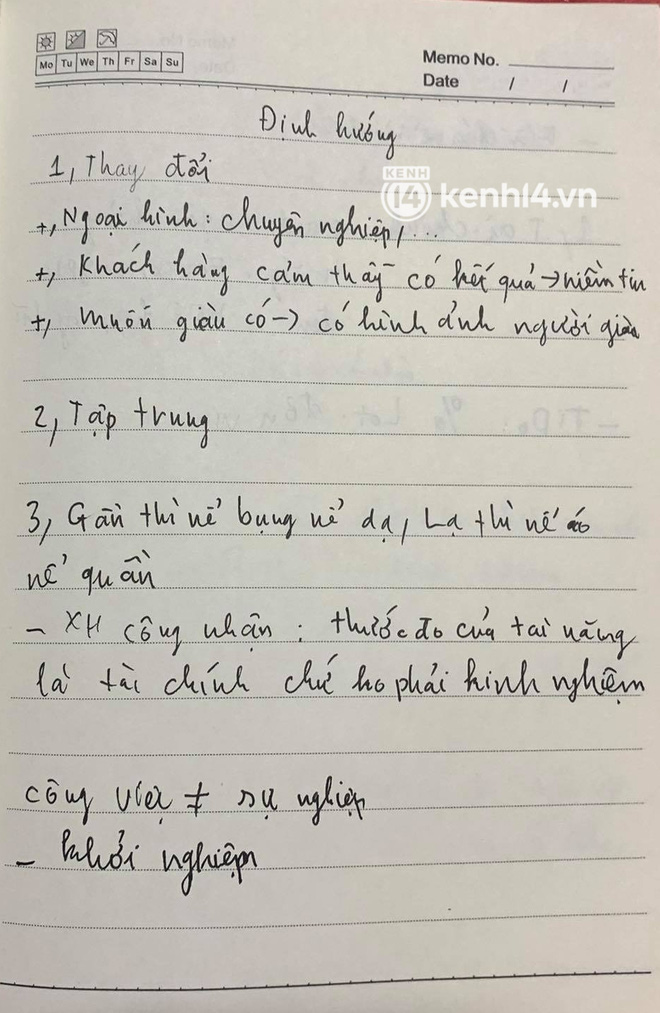 Mo Tu We Th Fr Sa Su
Memo No.
Date / /
Định hướng
1, Thay đổi
KENH 14 kenh14.vn
+, Ngoại hình : chuyên nghiệp, ...
+, Khách hàng cảm thấy có kết quả → niềm tin
+, Muốn giàu có → có hình ảnh người giàu
2, Tập trung
3, Gần thì nể bụng nể dạ, Lạ thì nể áo
nể quần
- XH công nhận : thước đo của tài năng
là tài chính chứ ko phải kinh nghiệm
công việc ≠ sự nghiệp
- khởi nghiệp